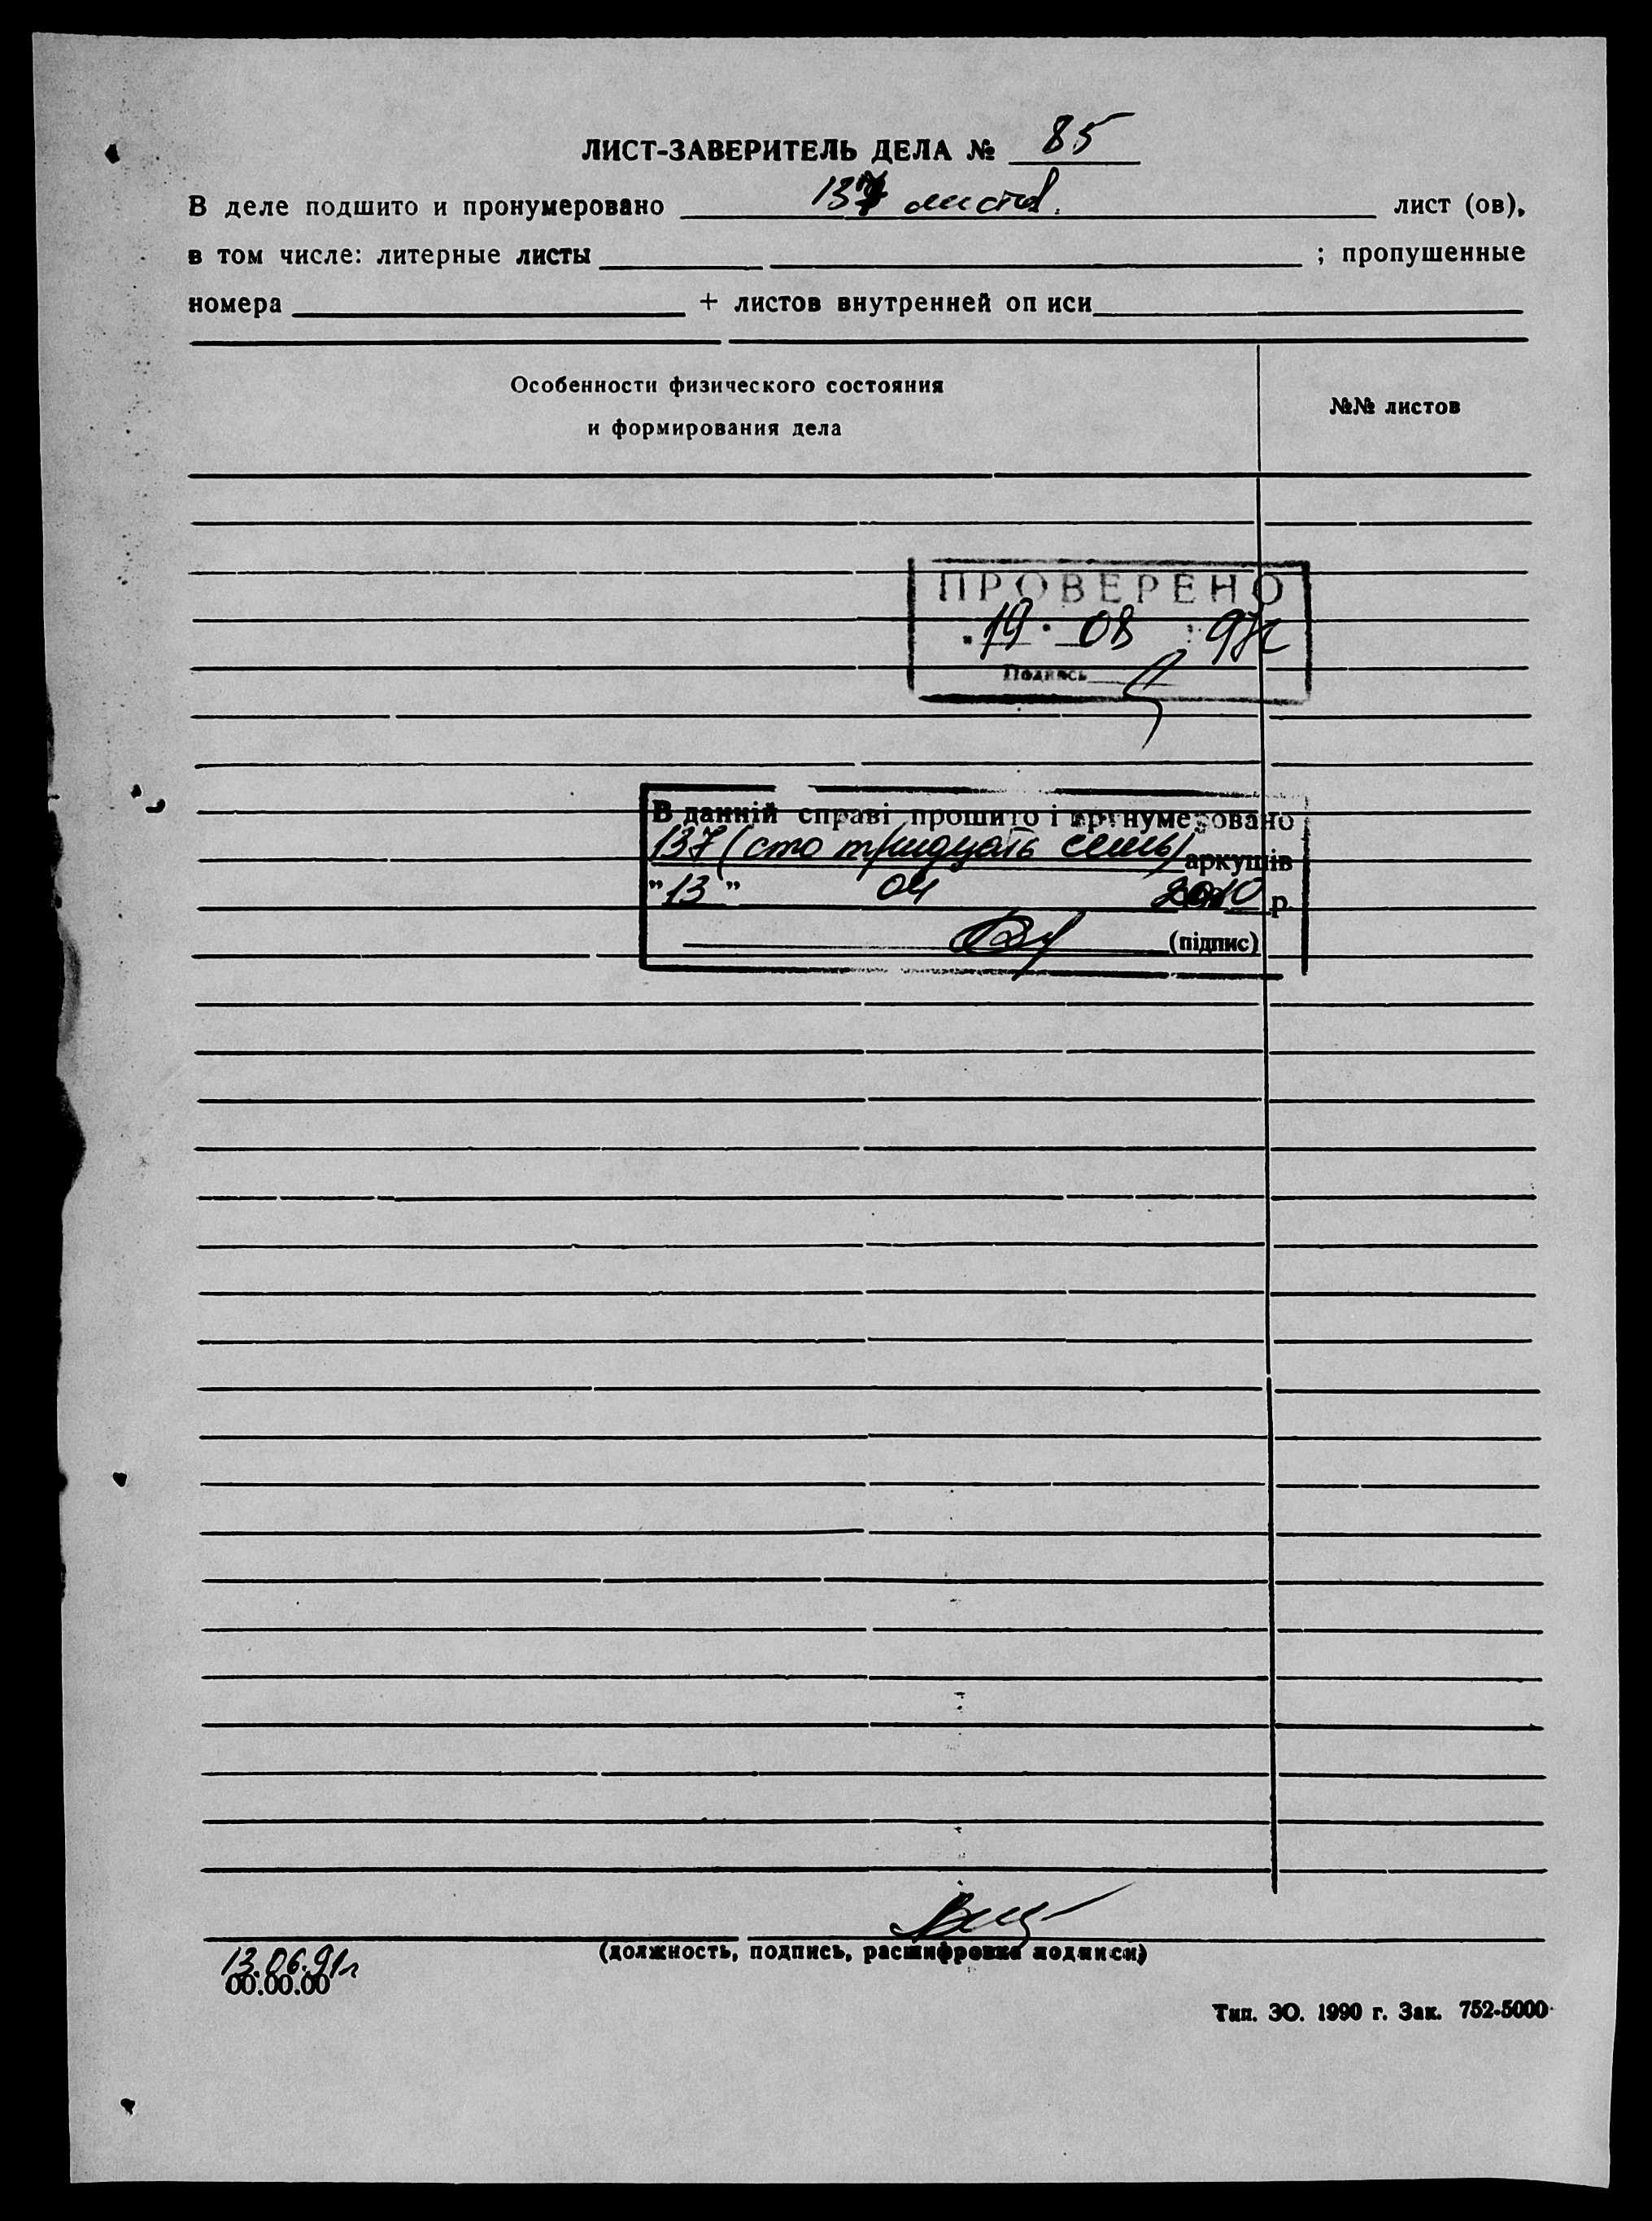 ЛИСТ-ЗАВЕРИТЕЛЬ ДЕЛА № 85
В деле подшито и пронумеровано 137 листов. лист (ов),
в том числе: литерные листы ; пропушенные
номера + листов внутренней оп иси
Особенности физического состояния
и формирования дела
№№ листов
ПРОВЕРЕНО
19 · 08
Подпись
В данній справі прошито і пронумеровано
137 (сто тридцать семь) аркушів
"13" 04 2010 р.
(підпис)
(должность, подпись, расшифровка подписи)
13.06.91г
00.00.00
Тип. ЭО. 1990 г. Зак. 752-5000